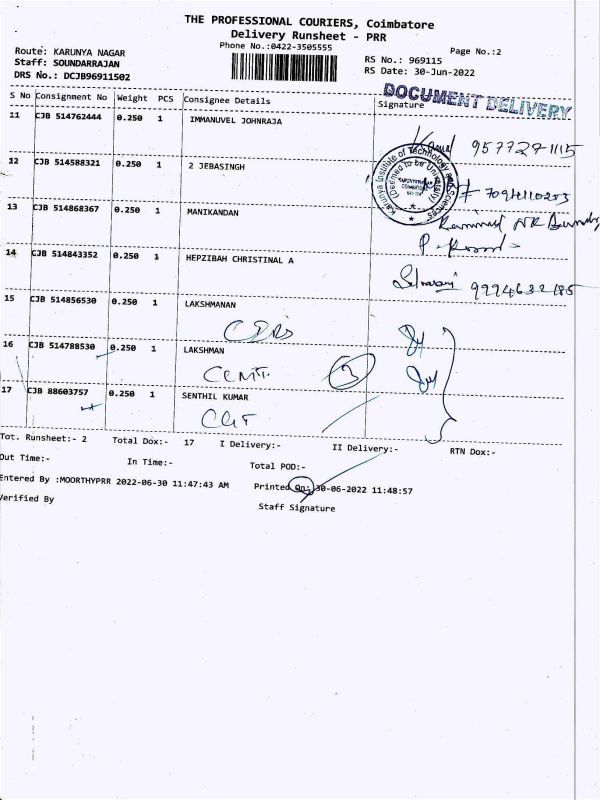 THE PROFESSIONAL COURIERS, Coimbatore
Delivery Runsheet - PRR
Phone No.:0422-3505555
Page No.:2
Route: KARUNYA NAGAR
RS No.: 969115
Staff: SOUNDARRAJAN
RS Date: 30-Jun-2022
DRS No.: DCJB96911502
DOCUMENT DELIVERY
S No Consignment No Weight PCS Consignee Details Signature
11 CJB 514762444 0.250 1 IMMANUVEL JOHNRAJA
12 CJB 514588321 0.250 1 2 JEBASINGH
Karunya Institute of Technology and Sciences
(Deemed to be University)
13 CJB 514868367 0.250 1 MANIKANDAN
14 CJB 514843352 0.250 1 HEPZIBAH CHRISTINAL A
15 CJB 514856530 0.250 1 LAKSHMANAN
16 CJB 514788530 0.250 1 LAKSHMAN
17 CJB 88603757 0.250 1 SENTHIL KUMAR
Tot. Runsheet:- 2 Total Dox:- 17 I Delivery:- II Delivery:- RTN Dox:-
Out Time:- In Time:- Total POD:-
Entered By :MOORTHYPRR 2022-06-30 11:47:43 AM Printed On: 30-06-2022 11:48:57
Verified By Staff Signature